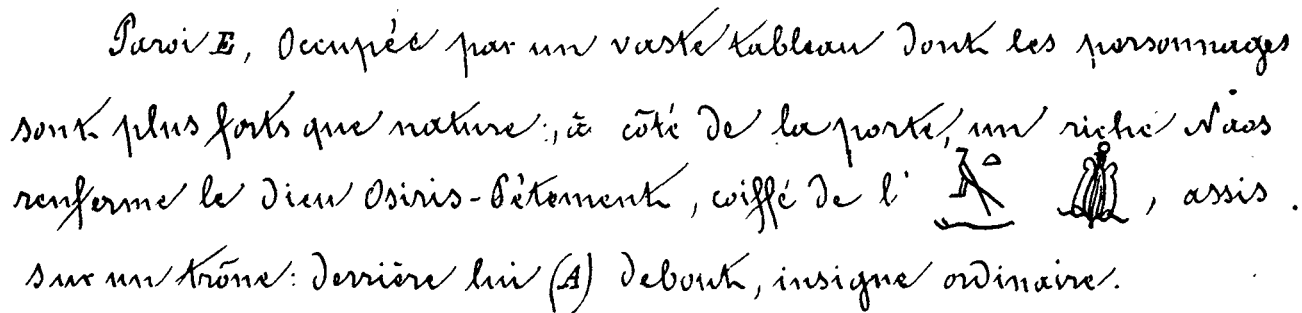 Paroi E, Occupée par un vaste tableau dont les personnages
sont plus forts que nature:, à côté de la porte, un riche Naos
renferme le dieu Osiris-Pétement, coiffé de l' , assis.
sur un trône: derrière lui (A) debout, insigne ordinaire.